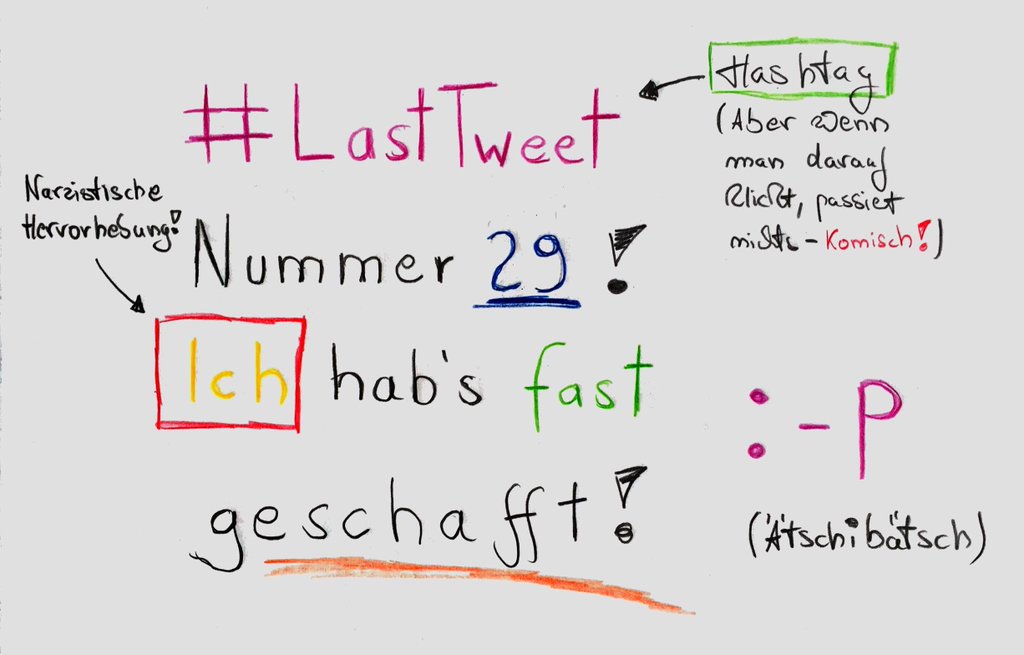 #LastTweet
Hashtag
(Aber wenn
man darauf
klickt, passiert
nichts - Komisch!)
Narzistische
Hervorhebung!
Nummer 29!
Ich hab's fast
geschafft!
:-P
(Ätschibätsch)